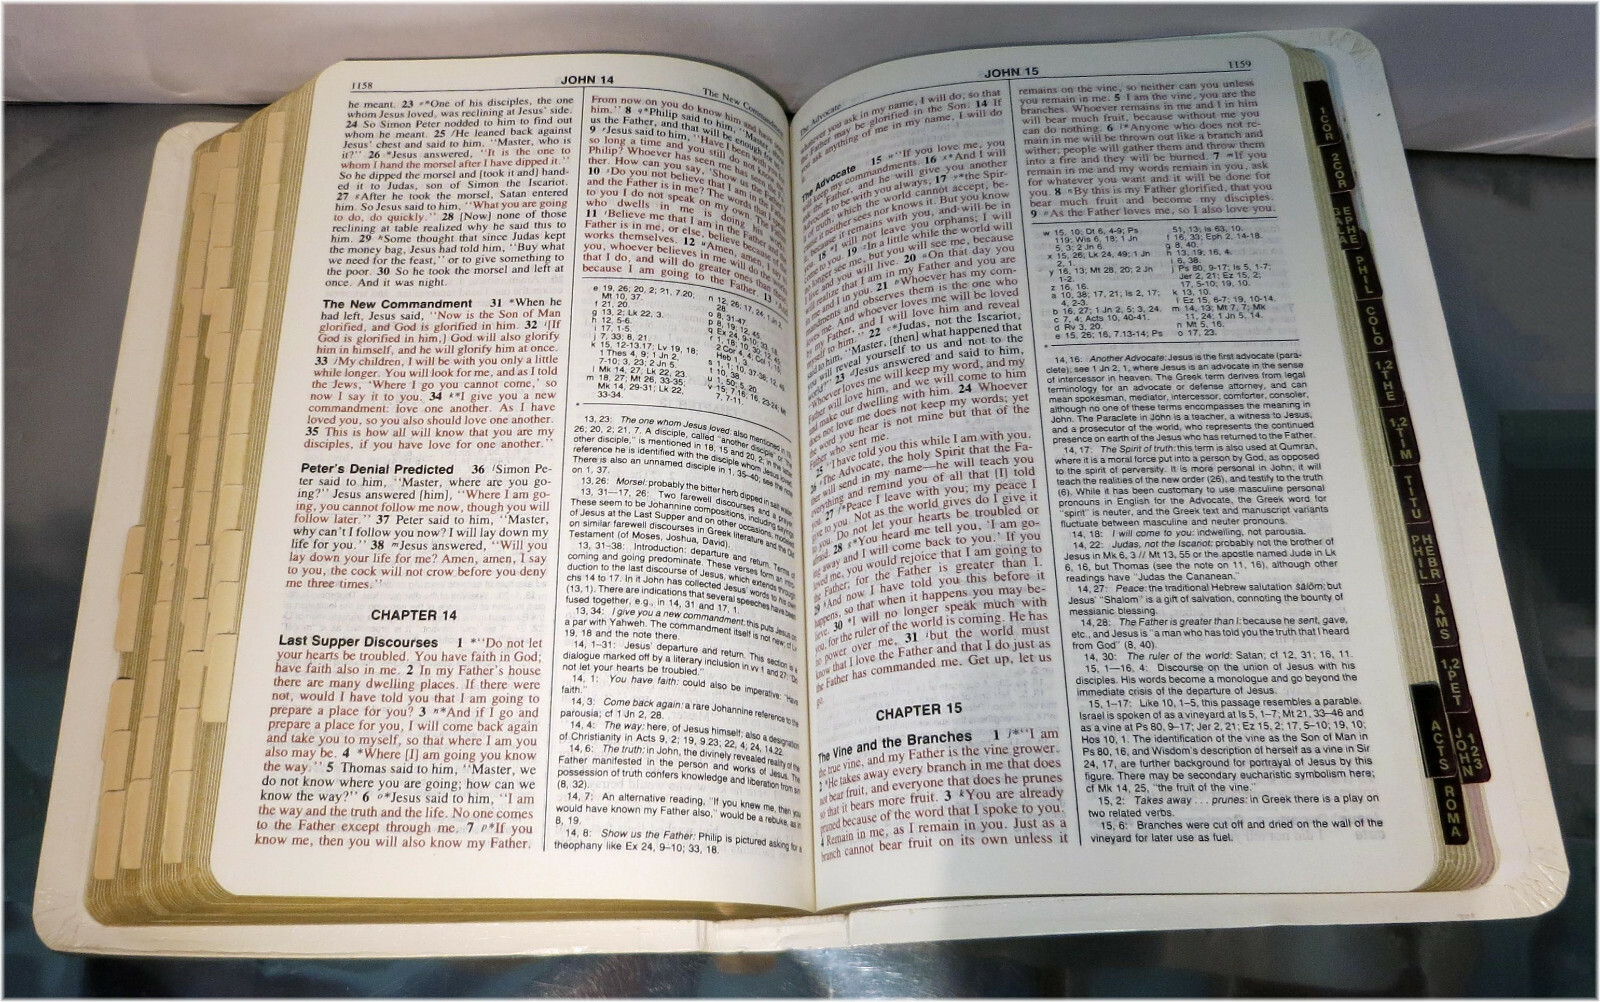 1158
JOHN 14
The New Commandment
he meant. 23 *One of his disciples, the one
whom Jesus loved, was reclining at Jesus' side.
24 So Simon Peter nodded to him to find out
whom he meant. 25 He leaned back against
Jesus' chest and said to him, "Master, who is
it?" 26 *Jesus answered, "It is the one to
whom I hand the morsel after I have dipped it."
So he dipped the morsel and [took it and] hand-
ed it to Judas, son of Simon the Iscariot.
27 After he took the morsel, Satan entered
him. So Jesus said to him, "What you are going
to do, do quickly." 28 [Now] none of those
reclining at table realized why he said this to
him. 29 Some thought that since Judas kept
the money bag, Jesus had told him, "Buy what
we need for the feast," or to give something to
the poor. 30 So he took the morsel and left at
once. And it was night.
The New Commandment 31 *When he
had left, Jesus said, "Now is the Son of Man
glorified, and God is glorified in him. 32 [If
God is glorified in him,] God will also glorify
him in himself, and he will glorify him at once.
33 My children, I will be with you only a little
while longer. You will look for me, and as I told
the Jews, 'Where I go you cannot come,' so
now I say it to you. 34 *I give you a new
commandment: love one another. As I have
loved you, so you also should love one another.
35 This is how all will know that you are my
disciples, if you have love for one another."
Peter's Denial Predicted 36 Simon Pe-
ter said to him, "Master, where are you go-
ing?" Jesus answered [him], "Where I am go-
ing, you cannot follow me now, though you will
follow later." 37 Peter said to him, "Master,
why can't I follow you now? I will lay down my
life for you." 38 Jesus answered, "Will you
lay down your life for me? Amen, amen, I say
to you, the cock will not crow before you deny
me three times."
CHAPTER 14
Last Supper Discourses 1 *"Do not let
your hearts be troubled. You have faith in God;
have faith also in me. 2 In my Father's house
there are many dwelling places. If there were
not, would I have told you that I am going to
prepare a place for you? 3 *And if I go and
prepare a place for you, I will come back again
and take you to myself, so that where I am you
also may be. 4 *Where [I] am going you know
the way." 5 Thomas said to him, "Master, we
do not know where you are going; how can we
know the way?" 6 *Jesus said to him, "I am
the way and the truth and the life. No one comes
to the Father except through me. 7 *If you
know me, then you will also know my Father.
From now on you do know him and have seen
him." 8 *Philip said to him, "Master, show
us the Father, and that will be enough for us."
9 Jesus said to him, "Have I been with you for
so long a time and you still do not know me,
Philip? Whoever has seen me has seen the Fa-
ther. How can you say, 'Show us the Father'?
10 Do you not believe that I am in the Father
and the Father is in me? The words that I speak
to you I do not speak on my own. The Father
who dwells in me is doing his works.
11 Believe me that I am in the Father and the
Father is in me, or else, believe because of the
works themselves. 12 *Amen, amen, I say to
you, whoever believes in me will do the works
that I do, and will do greater ones than these,
because I am going to the Father. 13
13, 23: The one whom Jesus loved: also mentioned in 19,
26; 20, 2; 21, 7. A disciple, called "another disciple" or "the
other disciple," is mentioned in 18, 15 and 20, 2; in the latter
reference he is identified with the disciple whom Jesus loved.
There is also an unnamed disciple in 1, 35-40; see the note
on 1, 37.
13, 26: Morsel: probably the bitter herb dipped in salt water.
13, 31—17, 26: Two farewell discourses and a prayer.
These seem to be Johannine compositions, including sayings
of Jesus at the Last Supper and on other occasions, modeled
on similar farewell discourses in Greek literature and the Old
Testament (of Moses, Joshua, David).
13, 31-38: Introduction: departure and return. Terms of
coming and going predominate. These verses form an intro-
duction to the last discourse of Jesus, which extends through
chs 14 to 17. In it John has collected Jesus' words to his own
(13, 1). There are indications that several speeches have been
fused together, e.g., in 14, 31 and 17, 1.
13, 34: I give you a new commandment: this puts Jesus on
a par with Yahweh. The commandment itself is not new; cf Lv
19, 18 and the note there.
14, 1-31: Jesus' departure and return. This section is a
dialogue marked off by a literary inclusion in vv 1 and 27: "Do
not let your hearts be troubled."
14, 1: You have faith: could also be imperative: "Have
faith."
14, 3: Come back again: a rare Johannine reference to the
parousia; cf 1 Jn 2, 28.
14, 4: The way: here, of Jesus himself; also a designation
of Christianity in Acts 9, 2; 19, 9.23; 22, 4; 24, 14.22.
14, 6: The truth: in John, the divinely revealed reality of the
Father manifested in the person and works of Jesus. The
possession of truth confers knowledge and liberation from sin
(8, 32).
14, 7: An alternative reading, "If you knew me, then you
would have known my Father also," would be a rebuke, as in
8, 19.
14, 8: Show us the Father: Philip is pictured asking for a
theophany like Ex 24, 9-10; 33, 18.
The Advocate
JOHN 15
1159
whatever you ask in my name, I will do, so that
the Father may be glorified in the Son. 14 If
you ask anything of me in my name, I will do
it.
The Advocate 15 "If you love me, you
will keep my commandments. 16 *And I will
ask the Father, and he will give you another
Advocate to be with you always, 17 *the Spir-
it of truth, which the world cannot accept, be-
cause it neither sees nor knows it. But you know
it, because it remains with you, and will be in
you. 18 *I will not leave you orphans; I will
come to you. 19 In a little while the world will
no longer see me, but you will see me, because
I live and you will live. 20 On that day you
will realize that I am in my Father and you are
in me and I in you. 21 Whoever has my com-
mandments and observes them is the one who
loves me. And whoever loves me will be loved
by my Father, and I will love him and reveal
myself to him." 22 *Judas, not the Iscariot,
said to him, "Master, [then] what happened that
you will reveal yourself to us and not to the
world?" 23 Jesus answered and said to him,
"Whoever loves me will keep my word, and my
Father will love him, and we will come to him
and make our dwelling with him. 24 Whoever
does not love me does not keep my words; yet
the word you hear is not mine but that of the
Father who sent me.
25 "I have told you this while I am with you.
26 The Advocate, the holy Spirit that the Fa-
ther will send in my name—he will teach you
everything and remind you of all that [I] told
you. 27 *Peace I leave with you; my peace I
give to you. Not as the world gives do I give it
to you. Do not let your hearts be troubled or
afraid. 28 *You heard me tell you, 'I am go-
ing away and I will come back to you.' If you
loved me, you would rejoice that I am going to
the Father; for the Father is greater than I.
29 And now I have told you this before it
happens, so that when it happens you may be-
lieve. 30 *I will no longer speak much with
you, for the ruler of the world is coming. He has
no power over me, 31 but the world must
know that I love the Father and that I do just as
the Father has commanded me. Get up, let us
go.
CHAPTER 15
The Vine and the Branches 1 *"I am
the true vine, and my Father is the vine grower.
2 *He takes away every branch in me that does
not bear fruit, and everyone that does he prunes
so that it bears more fruit. 3 You are already
pruned because of the word that I spoke to you.
4 Remain in me, as I remain in you. Just as a
branch cannot bear fruit on its own unless it
remains on the vine, so neither can you unless
you remain in me. 5 I am the vine, you are the
branches. Whoever remains in me and I in him
will bear much fruit, because without me you
can do nothing. 6 *Anyone who does not re-
main in me will be thrown out like a branch and
wither; people will gather them and throw them
into a fire and they will be burned. 7 If you
remain in me and my words remain in you, ask
for whatever you want and it will be done for
you. 8 By this is my Father glorified, that you
bear much fruit and become my disciples.
9 As the Father loves me, so I also love you.
14, 16: Another Advocate: Jesus is the first advocate (para-
clete); see 1 Jn 2, 1, where Jesus is an advocate in the sense
of intercessor in heaven. The Greek term derives from legal
terminology for an advocate or defense attorney, and can
mean spokesman, mediator, intercessor, comforter, consoler,
although no one of these terms encompasses the meaning in
John. The Paraclete in John is a teacher, a witness to Jesus,
and a prosecutor of the world, who represents the continued
presence on earth of the Jesus who has returned to the Father.
14, 17: The Spirit of truth: this term is also used at Qumran,
where it is a moral force put into a person by God, as opposed
to the spirit of perversity. It is more personal in John; it will
teach the realities of the new order (26), and testify to the truth
(6). While it has been customary to use masculine personal
pronouns in English for the Advocate, the Greek word for
"spirit" is neuter, and the Greek text and manuscript variants
fluctuate between masculine and neuter pronouns.
14, 18: I will come to you: indwelling, not parousia.
14, 22: Judas, not the Iscariot: probably not the brother of
Jesus in Mk 6, 3 // Mt 13, 55 or the apostle named Jude in Lk
6, 16, but Thomas (see the note on 11, 16), although other
readings have "Judas the Cananean."
14, 27: Peace: the traditional Hebrew salutation šālôm; but
Jesus' "Shalom" is a gift of salvation, connoting the bounty of
messianic blessing.
14, 28: The Father is greater than I: because he sent, gave,
etc., and Jesus is "a man who has told you the truth that I heard
from God" (8, 40).
14, 30: The ruler of the world: Satan; cf 12, 31; 16, 11.
15, 1—16, 4: Discourse on the union of Jesus with his
disciples. His words become a monologue and go beyond the
immediate crisis of the departure of Jesus.
15, 1-17: Like 10, 1-5, this passage resembles a parable.
Israel is spoken of as a vineyard at Is 5, 1-7; Mt 21, 33-46 and
as a vine at Ps 80, 9-17; Jer 2, 21; Ez 15, 2; 17, 5-10; 19, 10;
Hos 10, 1. The identification of the vine as the Son of Man in
Ps 80, 16, and Wisdom's description of herself as a vine in Sir
24, 17, are further background for portrayal of Jesus by this
figure. There may be secondary eucharistic symbolism here;
cf Mk 14, 25, "the fruit of the vine."
15, 2: Takes away . . . prunes: in Greek there is a play on
two related verbs.
15, 6: Branches were cut off and dried on the wall of the
vineyard for later use as fuel.
1 COR
2 COR
GALA EPHE
PHIL
COLO
1,2 THE
1,2 TIM
TITU
PHIL HEBR
JAMS
1,2 PET
ACTS
1 2 3 JOHN
ROMA